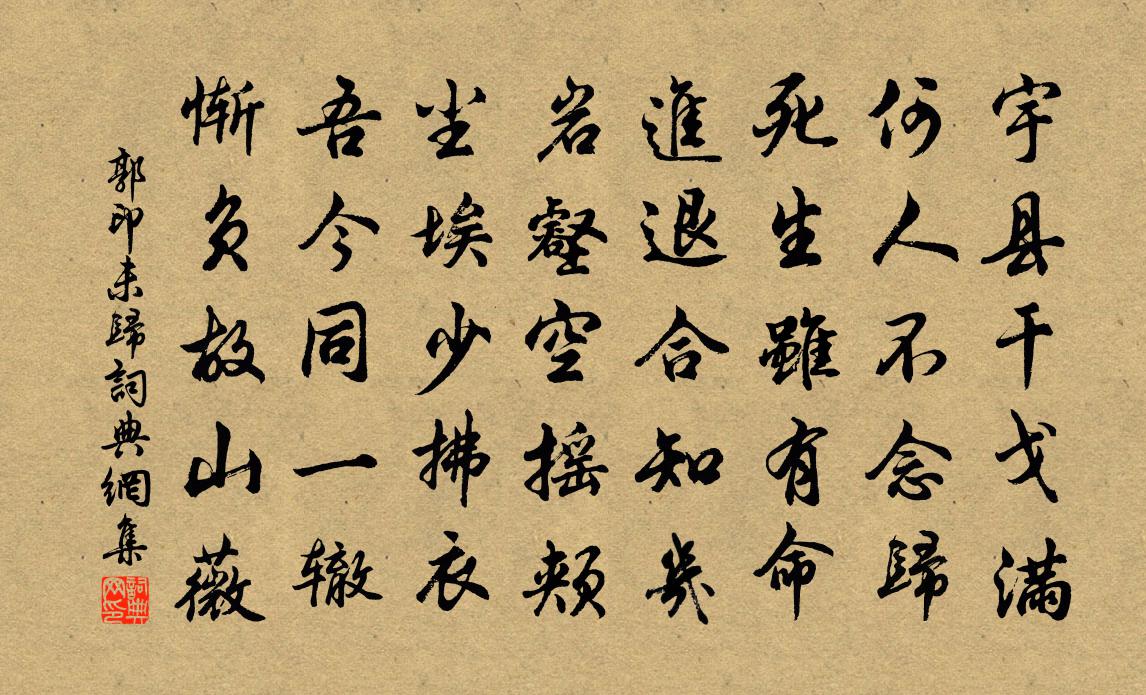 宇县干戈满
何人不念歸
死生雖有命
進退合知幾
岩壑空摇颊
尘埃少拂衣
吾今同一辙
惭负故山薇
郭印未歸詞典網集
詞典网印